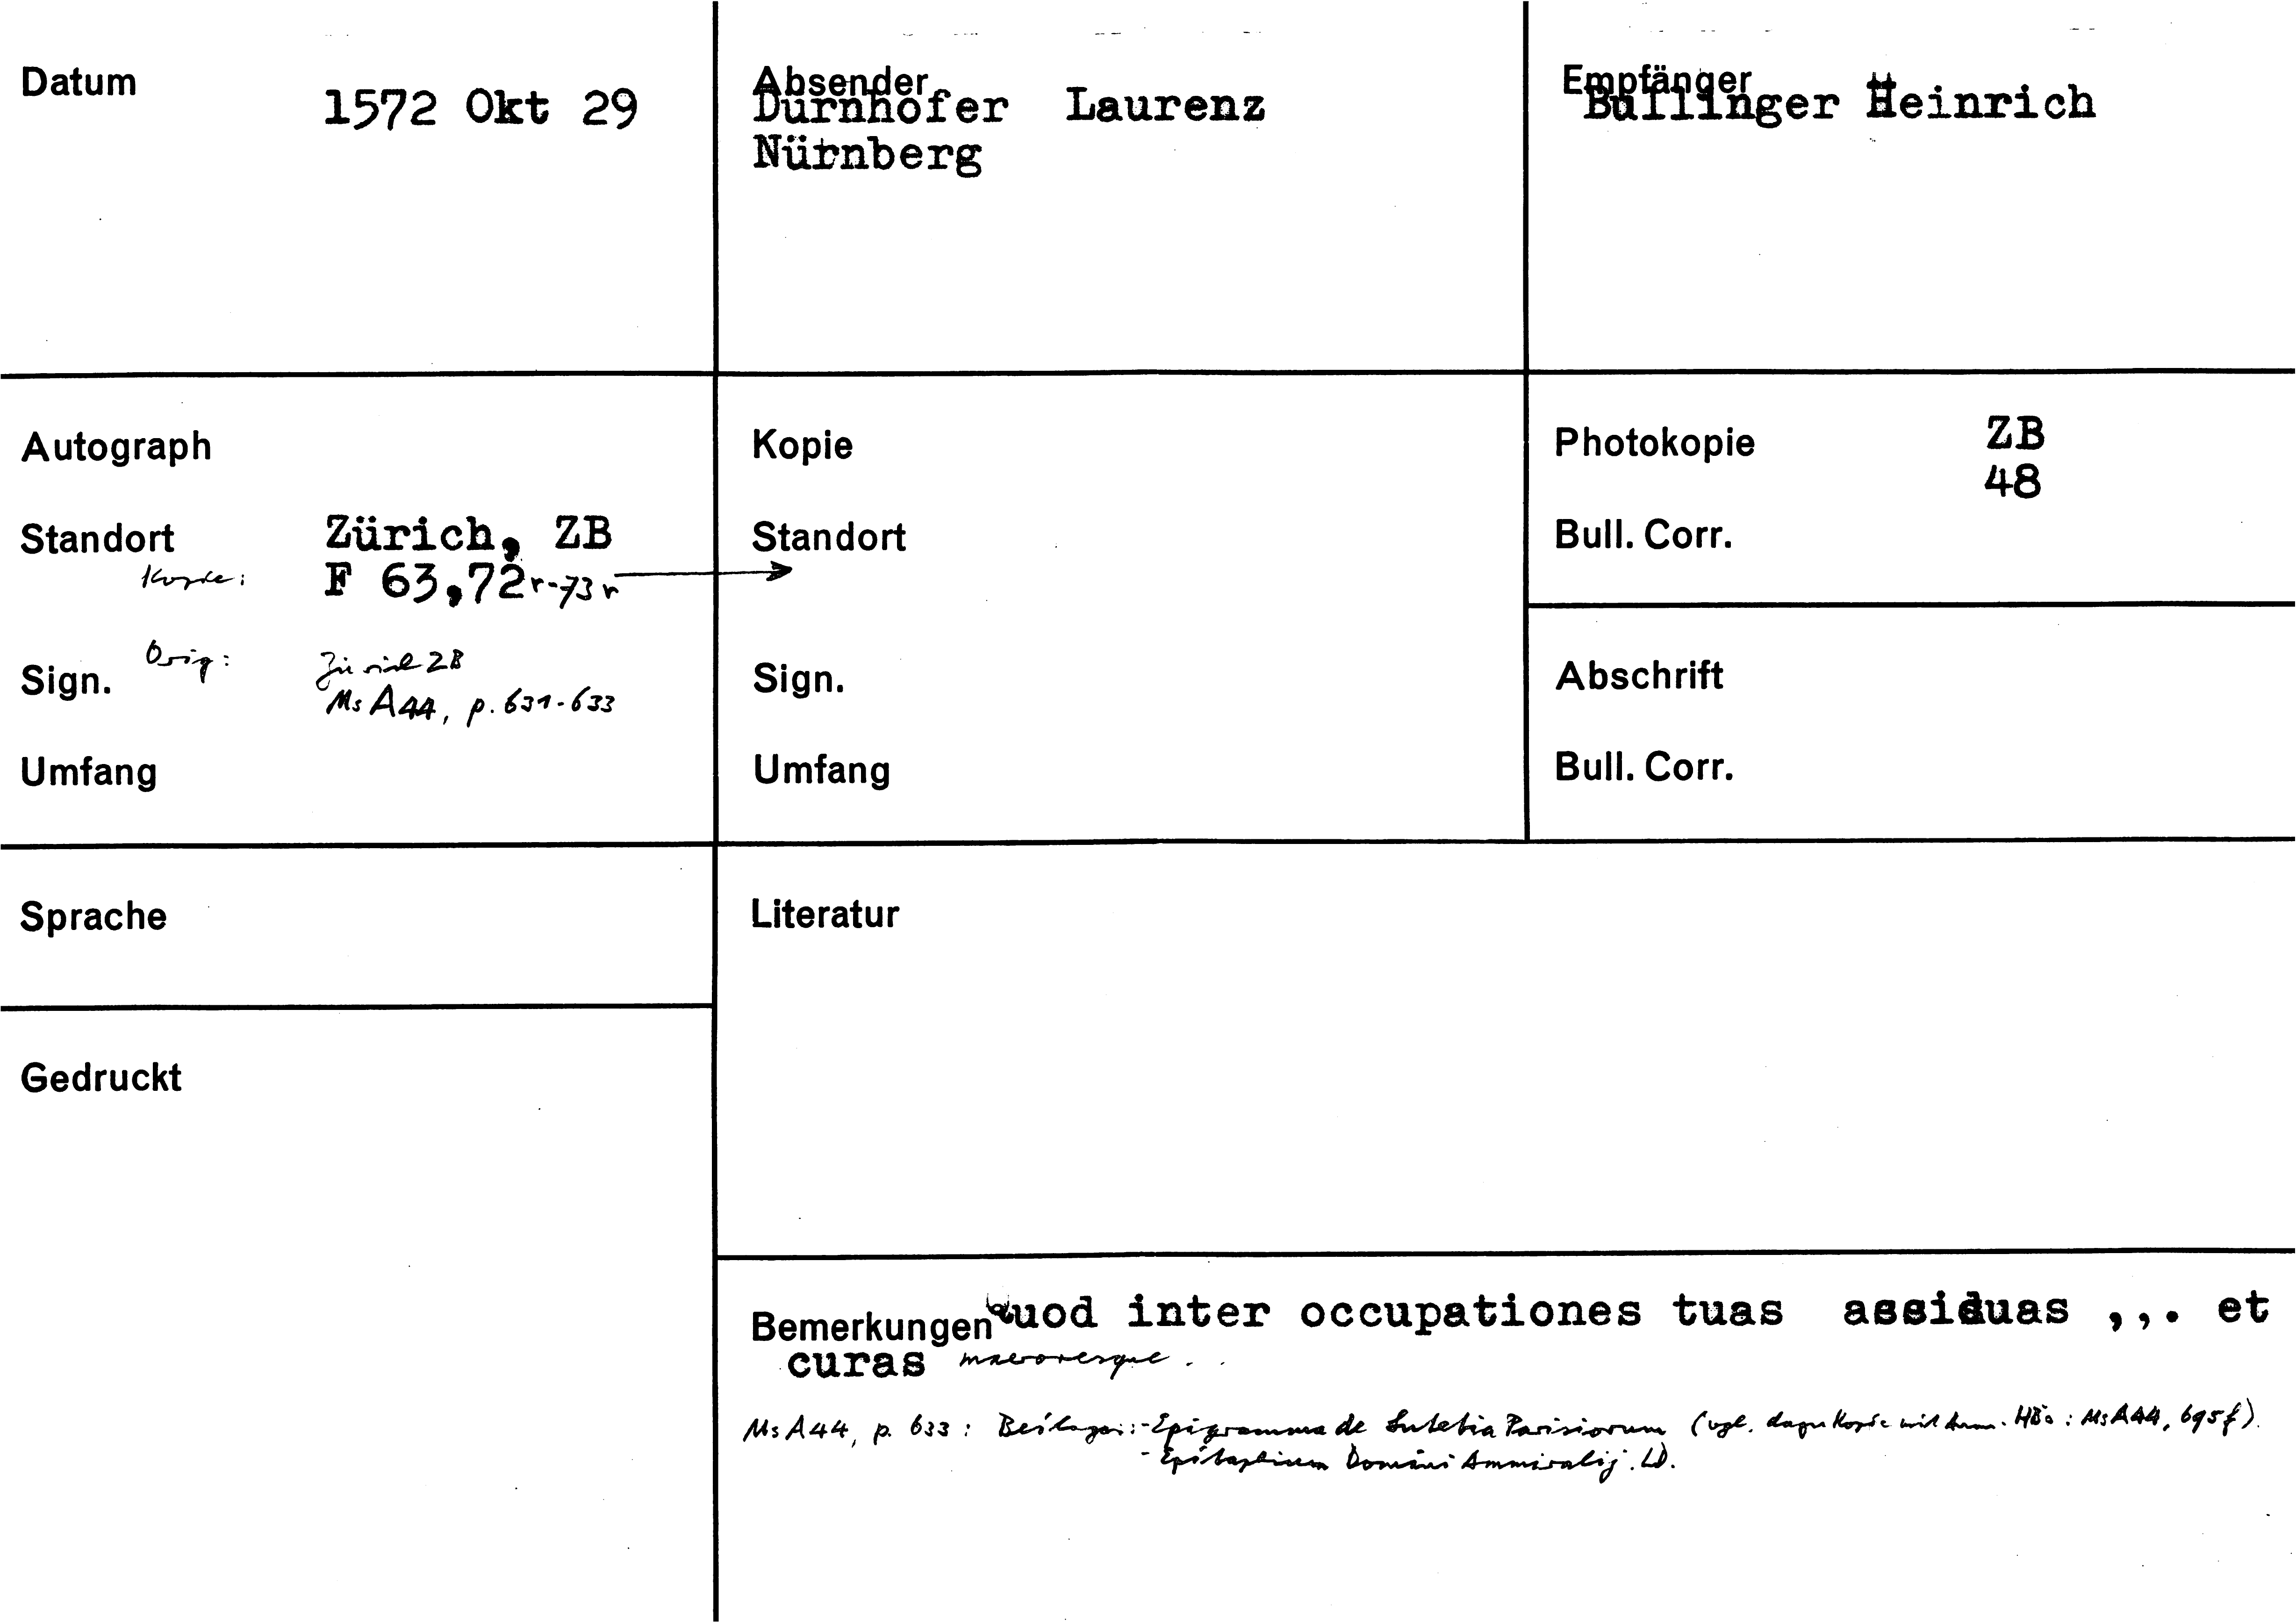 Datum
1572 Okt 29
Absender
Dürnhofer Laurenz
Nürnberg
Empfänger
Bullinger Heinrich
Autograph
Standort Zürich, ZB
Kopie: F 63,72r-73r
Sign. Orig: Zürich ZB
Ms A44, p. 631-633
Umfang
Kopie
Standort
Sign.
Umfang
Photokopie ZB
48
Bull. Corr.
Abschrift
Bull. Corr.
Sprache
Gedruckt
Literatur
Bemerkungen Quod inter occupationes tuas assiduas ,,. et
curas maeroresque . .
Ms A44, p. 633 : Beilagen: - Epigramma de Lutetia Parisiorum (vgl. dazu Kopie mit Anm. HBs : Ms A44, 695f).
- Epitaphium Domini Ammiralij. LD.